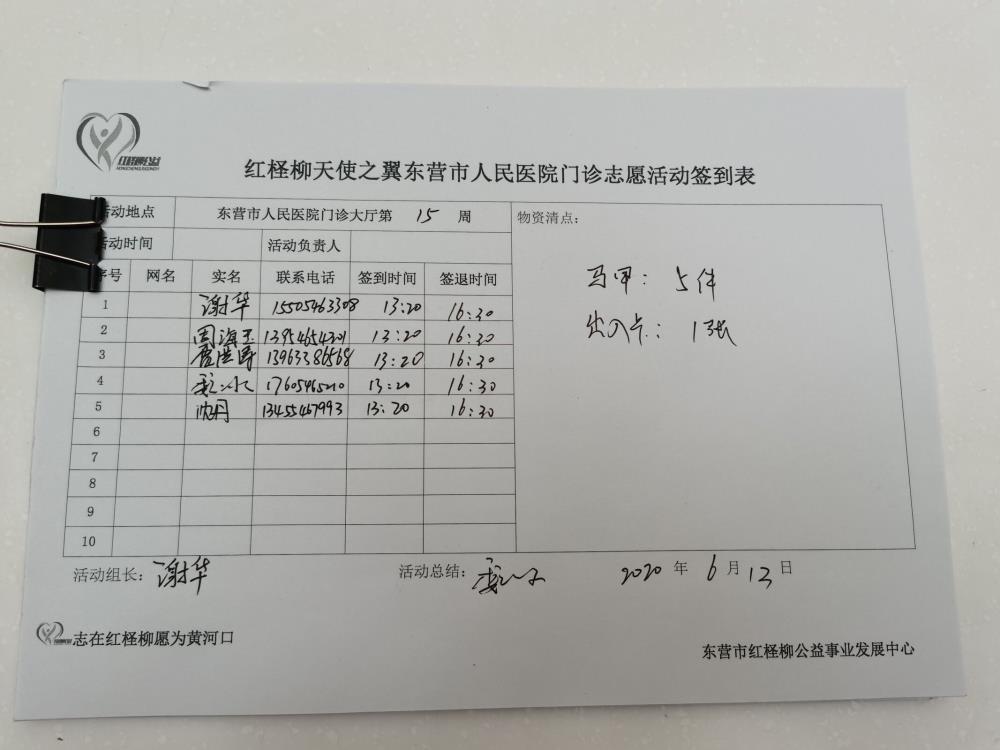 红柽柳公益
红柽柳天使之翼东营市人民医院门诊志愿活动签到表
活动地点 东营市人民医院门诊大厅第 15 周 物资清点：
活动时间 活动负责人
序号 网名 实名 联系电话 签到时间 签退时间
马甲：5件
1 谢华 15505463308 13:20 16:30
出入卡：1张
2 周海玉 13954654301 13:20 16:30
3 13963386568 13:20 16:30
4 17605465210 13:20 16:30
5 13455467993 13:20 16:30
6
7
8
9
10
活动组长：谢华 活动总结： 2020 年 6 月 13 日
志在红柽柳愿为黄河口
东营市红柽柳公益事业发展中心